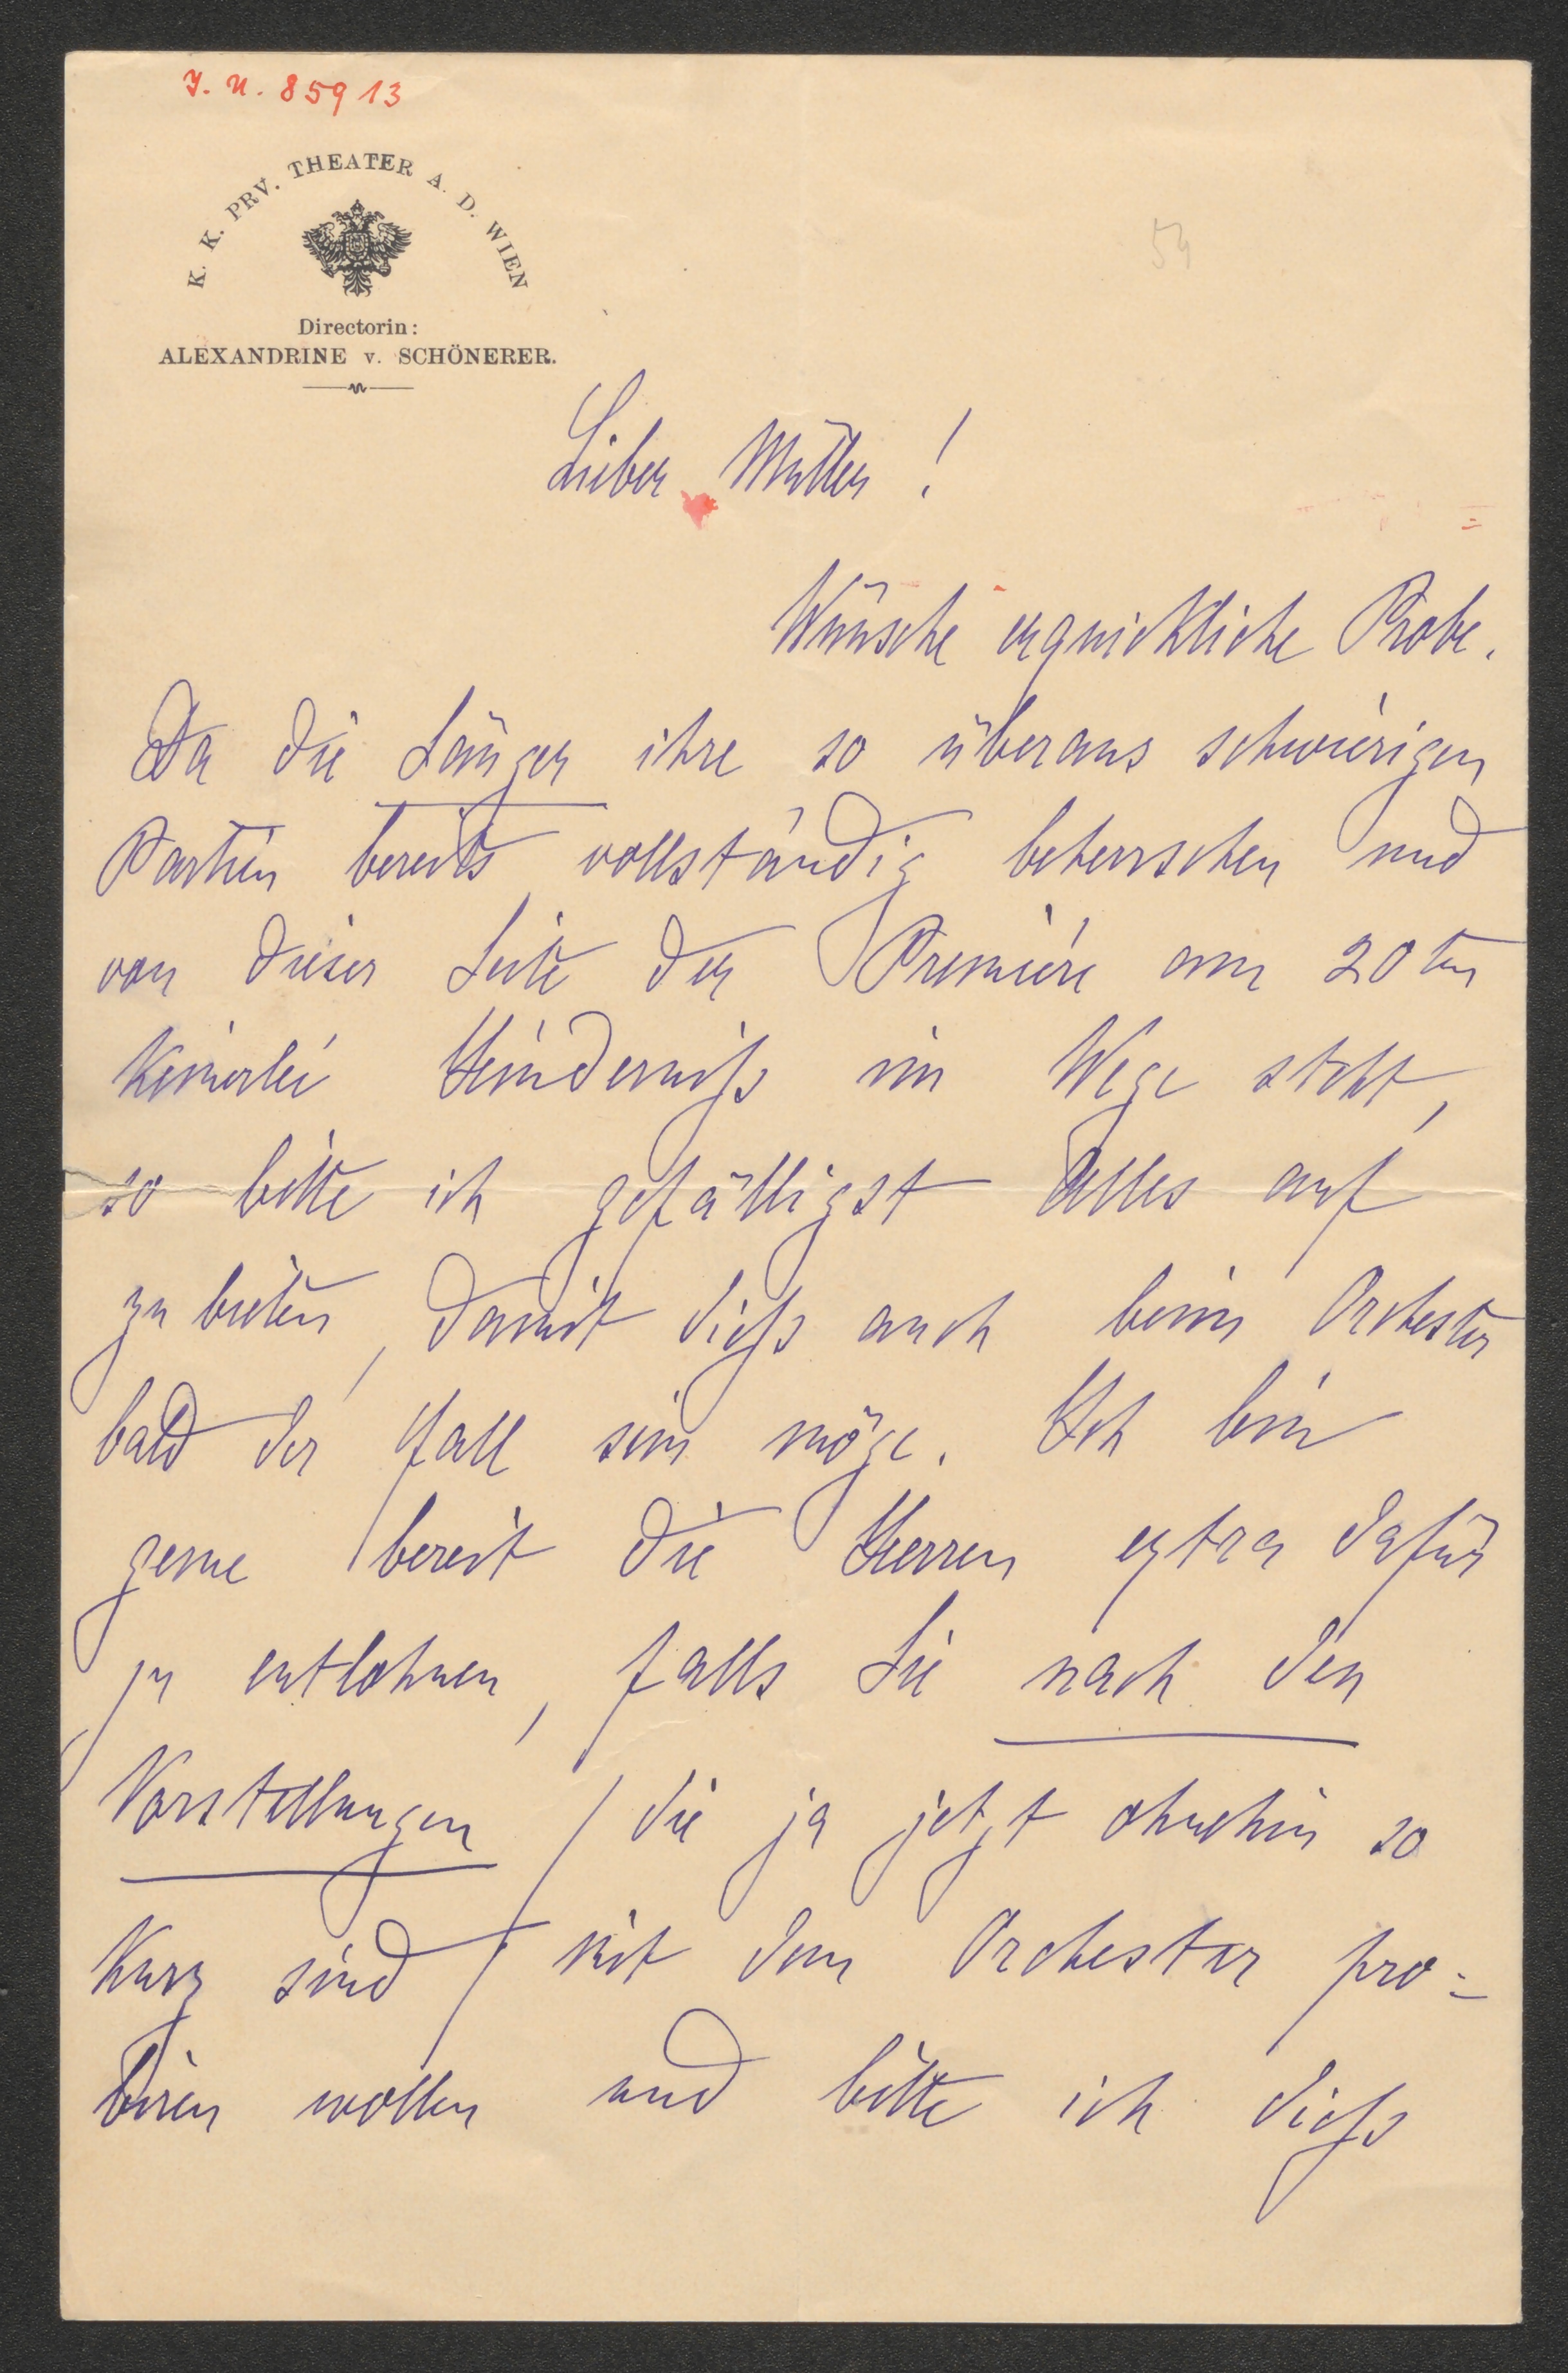 J. N. 85913
K. K. PRV. THEATER A. D. WIEN
54
Directorin:
ALEXANDRINE v. SCHÖNERER.
Lieber Müller!
Wünsche erquickliche Probe.
Da die Sänger ihre so überaus schwierigen
Partien bereits vollständig beherrschen und
von dieser Seite der Première am 20ten
keinerlei Hinderniß im Wege steht,
so bitte ich gefälligst Alles auf
zu bieten, damit dieß auch beim Orchester
bald der Fall sein möge. Ich bin
gerne bereit die Herren extra dafür
zu entlohnen, falls Sie nach den
Vorstellungen / die ja jetzt ohnehin so
kurz sind / mit dem Orchester pro=
biren wollen und bitte ich dieß